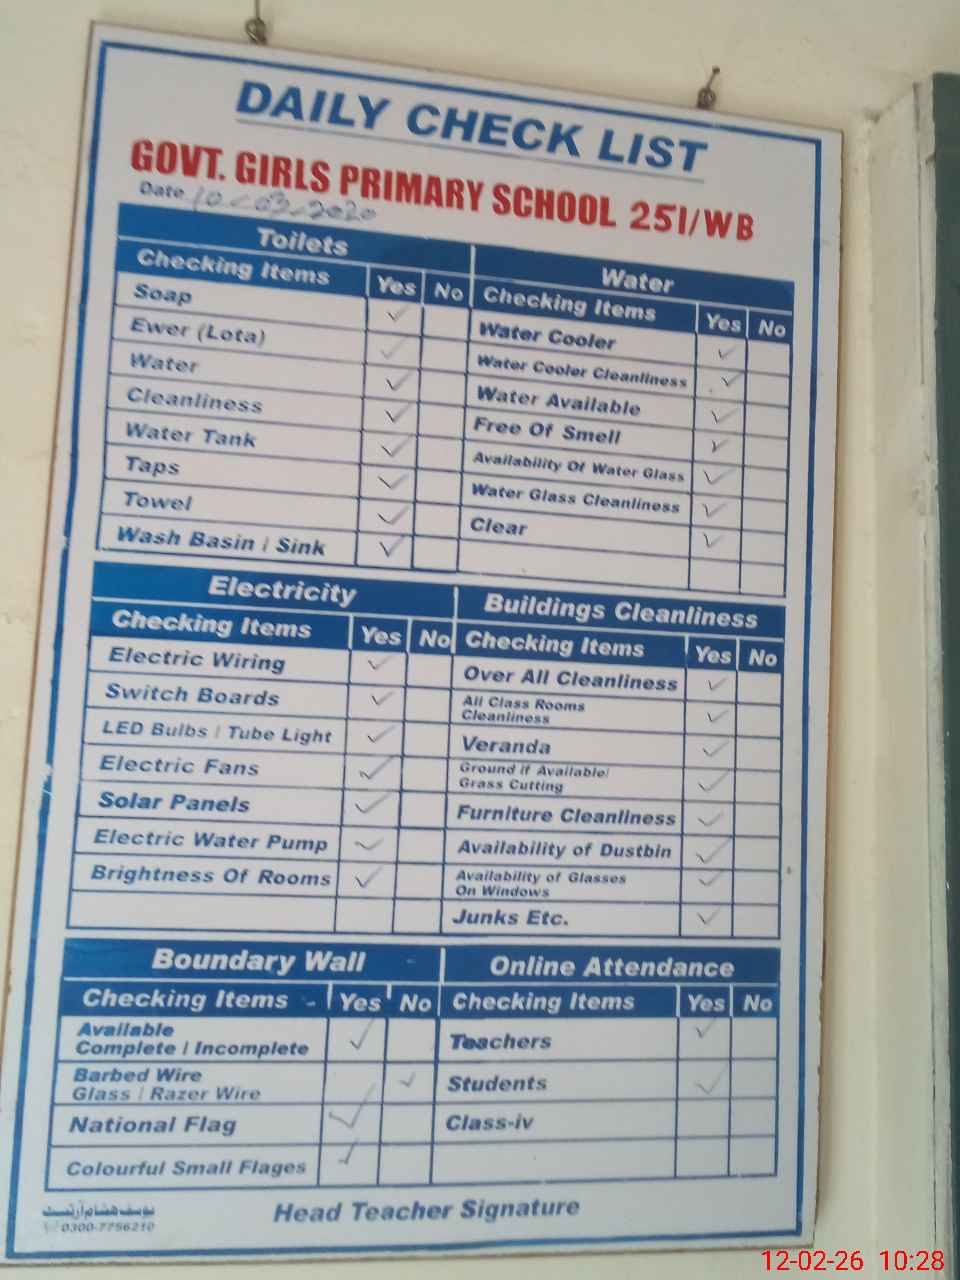 DAILY CHECK LIST
GOVT. GIRLS PRIMARY SCHOOL 251/WB
Date 10-03-2020
Toilets
Checking Items Yes No
Soap ✓
Ewer (Lota) ✓
Water ✓
Cleanliness ✓
Water Tank ✓
Taps ✓
Towel ✓
Wash Basin / Sink ✓
Water
Checking Items Yes No
Water Cooler ✓
Water Cooler Cleanliness ✓
Water Available ✓
Free Of Smell ✓
Availability Of Water Glass ✓
Water Glass Cleanliness ✓
Clear ✓
Electricity
Checking Items Yes No
Electric Wiring ✓
Switch Boards ✓
LED Bulbs / Tube Light ✓
Electric Fans ✓
Solar Panels ✓
Electric Water Pump ✓
Brightness Of Rooms ✓
Buildings Cleanliness
Checking Items Yes No
Over All Cleanliness ✓
All Class Rooms
Cleanliness ✓
Veranda ✓
Ground if Available/
Grass Cutting ✓
Furniture Cleanliness ✓
Availability of Dustbin ✓
Availability of Glasses
On Windows ✓
Junks Etc. ✓
Boundary Wall
Checking Items - Yes No
Available
Complete / Incomplete ✓
Barbed Wire
Glass / Razer Wire ✓
National Flag ✓
Colourful Small Flages ✓
Online Attendance
Checking Items Yes No
Teachers ✓
Students ✓
Class-iv
Head Teacher Signature
یوسف ھشام آرٹسٹ
0300-7756210
12-02-26 10:28